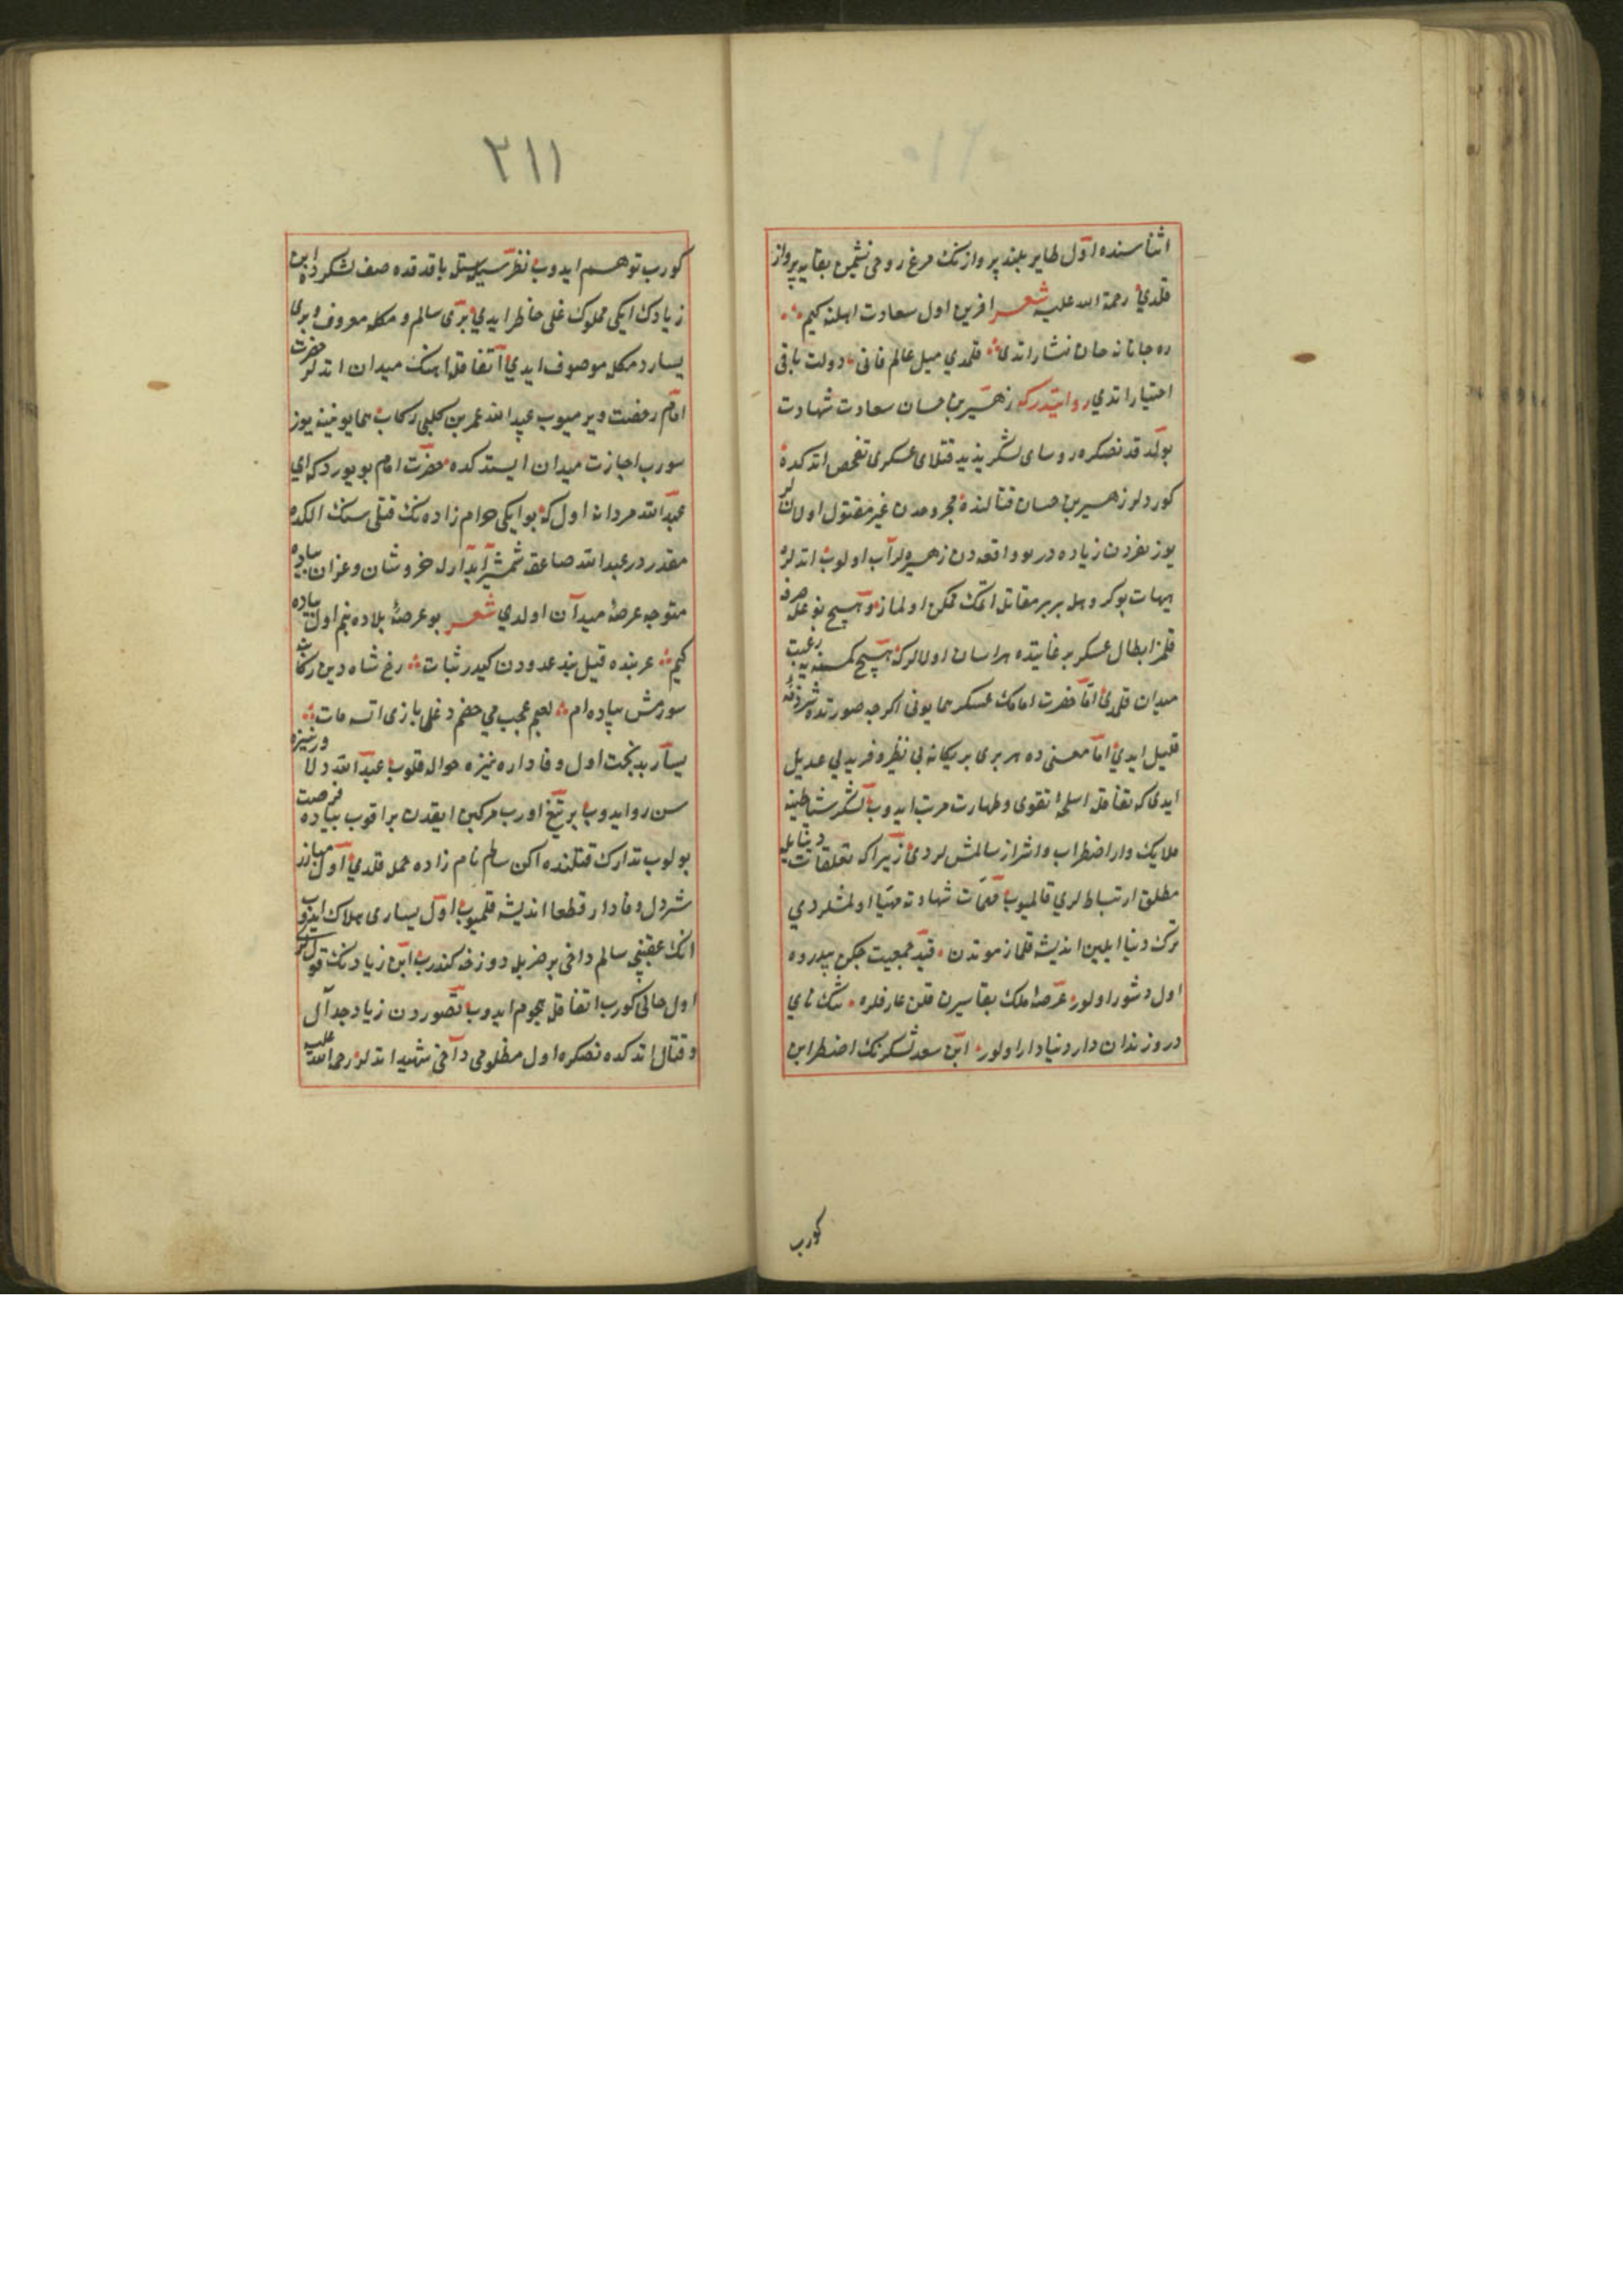 اثناسنده اول طاير بلند پروازنك مرغ روحى نشيمن بقايه پرواز
قلدي رحمة الله عليه شعر افرين اول سعادت اهلنه كيم
ره جانانه جان نثار اتدى قلمدي ميل عالم فانى دولت باقى
اختيار اتدي روايتدركه زهير بن حسان سعادت شهادت
بولدقدنصكره روساى لشكر يزيد قتلاى عسكرى تفحص اتدكده
كوردلر زهير بن حسان قتالنده مجروحدن غير مقتول اولانلر
يوز نفردن زياده در بو واقعه دن زهره لر آب اولوب اتدلر
هيهات بو كروهله برر برر مقاتله اتمك ممكن اولماز و هيچ نوعله صرفه
قلمز ابطال عسكر بر غايتده هراسان اولالركه هيچ كمسنه يه رغبت
ميدان قلمدى اما حضرت امامك عسكر همايونى اكرچه صورتده شرذمه
قليل ايدى اما معنى ده هر برى بر يكانه بى نظير و فريد بى عديل
ايدى كه اتفاقله اسلحه تقوى و طهارت مرتب ايدوب لشكر شياطينه
ملايك وار اضطراب و اشراز سالمش لردى زيرا كه تعلقات دنيايله
مطلق ارتباط لري قالميوب مهمات شهادته مهيا اولمشلردي
ترك دنيا ايلين انديشه قلماز موتدن قيد جمعيت چكن بيدرده
اول دشور اولور عرصه ملك بقا سيرن قلن عارفلره تنك ناي
در و زندان دار دنيا دار اولور ابن سعد لشكرنك اضطرابن
كورب
٢١١
كورب توهم ايدوب نظر سيله باقدقده صف لشكرده ابن
زيادك ايكى مملوك غلى حاظر ايدي برى سالم و مكله معروف و برى
يسار دمكله موصوف ايدي اتفاقله اهنك ميدان اتدلر حضرت
امام رخصت ويرميوب عبد الله عمر بن كلبى ركاب همايونينه يوز
سورب اجازت ميدان ايستدكده حضرت امام بويوردكه اى
عبد الله مردانه اول كه بو ايكى حرام زاده نك قتلى سنك الكده
مقدردر عبد الله صاعقه شمشير آبدارله خروشان و غران پياده
متوجه عرصه ميدان اولدي شعر بو عرصه بلاده بنم اول پياده
كيم عربنده فيل بند عدودن كيدر ثبات رخ شاه دين ركابنه
سورمش پياده ام لعبم عجب مى خصم دغلى بازى اتسه مات
يسار بدبخت اول وفاداره نيزه حواله قلوب عبد الله دلاور نيزه
سن رد ايدوب بر تيغ اورب مركبن ايقدن براقوب پياده فرصت
بولوب تدارك قتلنده اكن سالم نام زاده حمله قلدي اول مبارز
شيردل وفادار قطعا انديشه قلميوب اول يسارى هلاك ايدوب
انك عقبنچه سالم داخى بر ضربله دوزخه كندرب ابن زيادنك قوللرى
اول حالى كورب اتفاقله هجوم ايدوب تصوردن زياد جدال
و قتال اتدكده نصكره اول مظلومى داخى شهيد اتدلر رحمة الله عليه